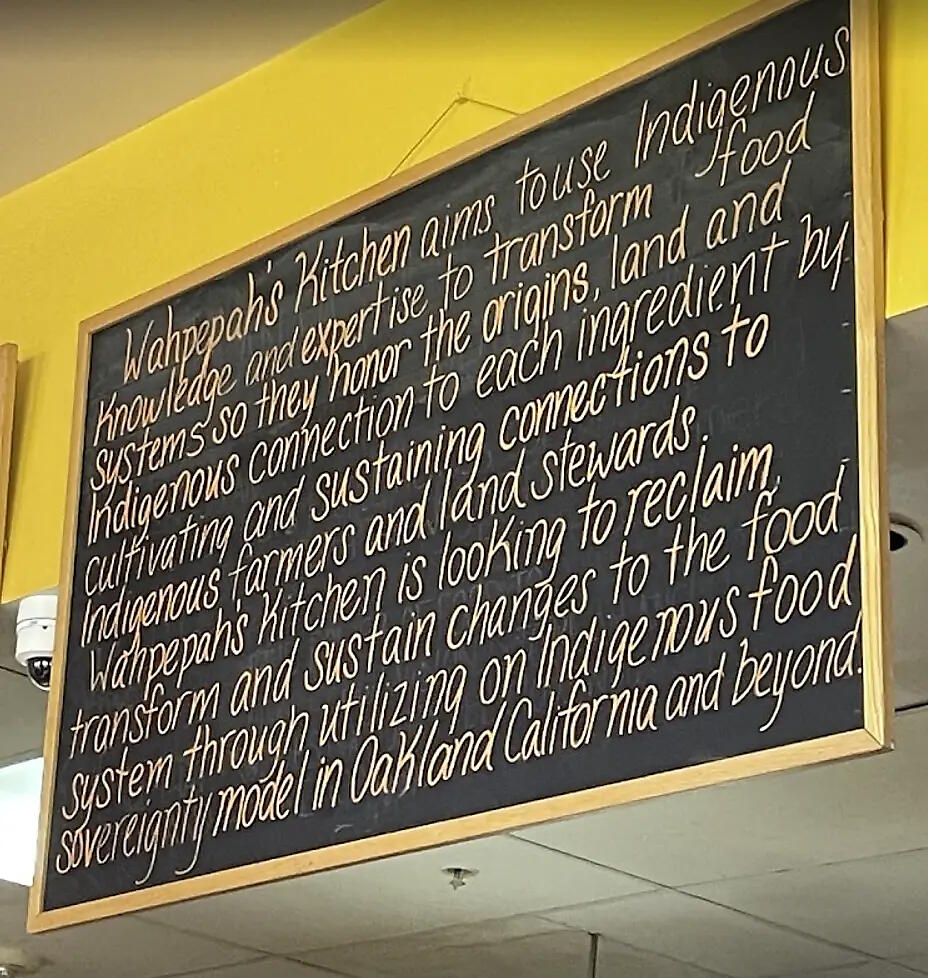 Wahpepah's Kitchen aims to use Indigenous
Knowledge and expertise to transform food
systems so they honor the origins, land and
Indigenous connection to each ingredient by
cultivating and sustaining connections to
Indigenous farmers and land stewards.
Wahpepah's Kitchen is looking to reclaim,
transform and sustain changes to the food
system through utilizing on Indigenous food
sovereignty model in Oakland California and beyond.